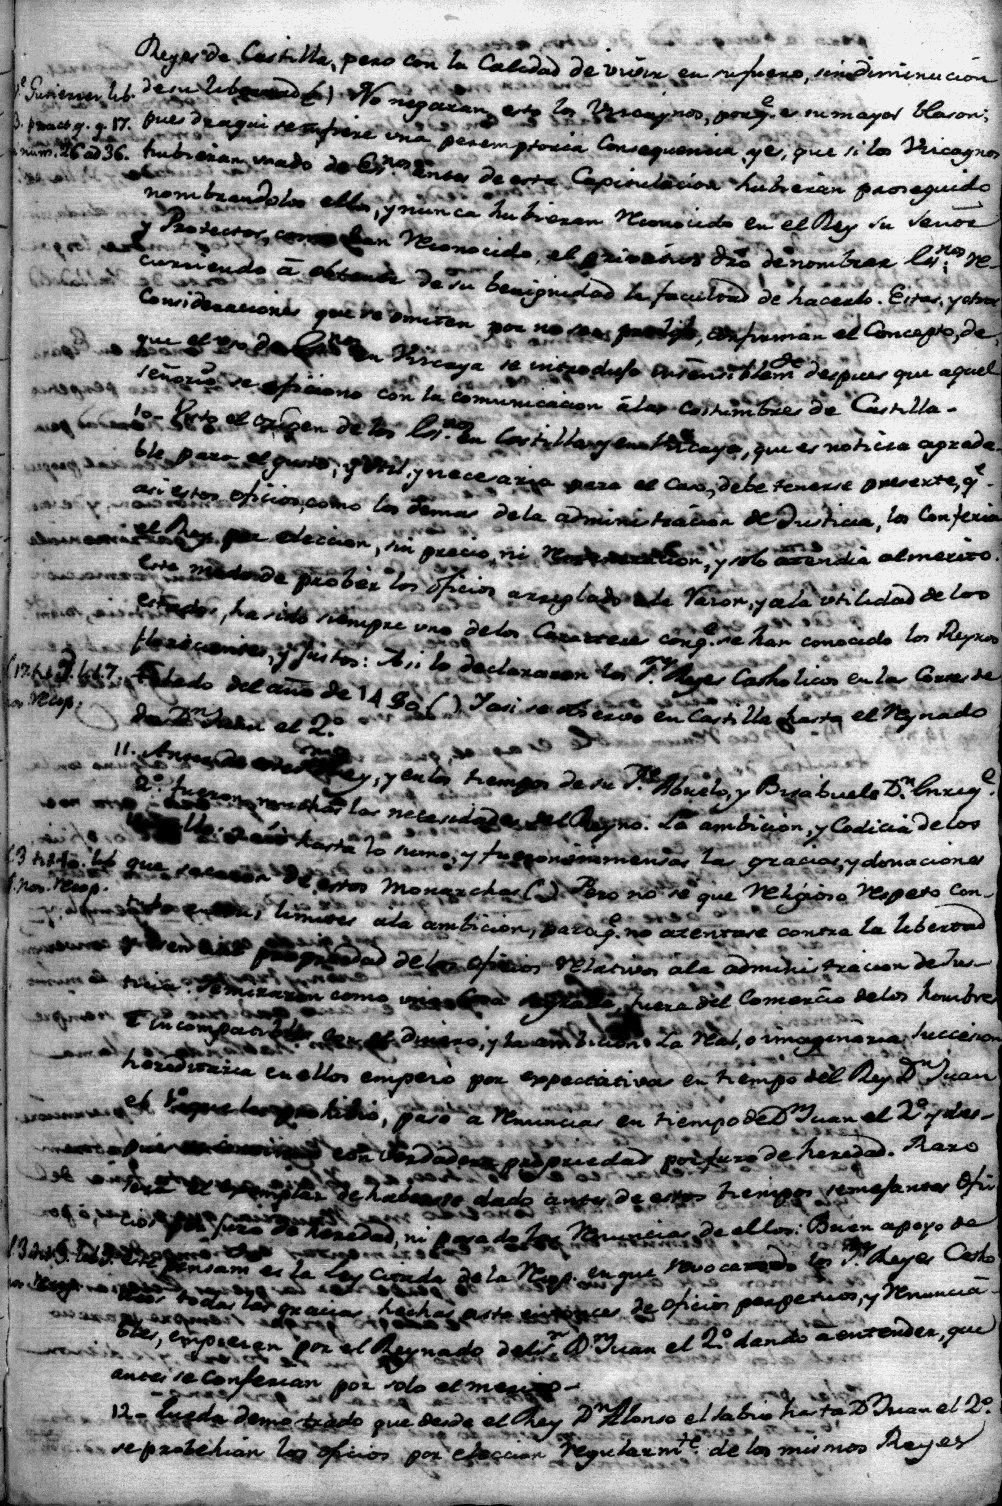 Reyes de Castilla, pero con la Calidad de vivir en su fuero, sin diminucion
de su libertad ( ) No negaran esto los Vizcaynos, porq.e es su mayor blason;
Gutierrez, lib.
3. pract. q. 17.
num. 26 ad 36.
pues de aqui se infiere una peremptoria Consequencia, y es, que si los Vizcaynos
hubieran usado de Es.nos antes de esta Capitulacion hubieran proseguido
nombrandolos ellos, y nunca hubieran reconocido en el Rey su señor
y Protector, como han reconocido, el dro de nombrar Es.nos re-
curriendo á obtener de su benignidad la facultad de hacerlo. Estas, y otras
Consideraciones que se omiten por no ser prolijo, confirman el Concepto, de
que el uso de Es.nos en Vizcaya se introdujo insensiblem.te despues que aquel
señorio se aficionó con la comunicacion á las costumbres de Castilla.
10. Visto el origen de los Es.nos en Castilla, y en Vizcaya, que es noticia agrada-
ble para el gusto, y util, y necesaria para el Caso, debe tenerse presente, q.e
asi estos oficios, como los demas de la administracion de Justicia, los Conferia
el Rey por eleccion, sin precio, ni y solo atendia al merito.
Este modo de prober los oficios arreglado a la razon, y a la utilidad de los
estados, ha sido siempre uno de los Caracteres con q.e se han conocido los Reynos
florecientes, y justos: Asi lo declararon los S.res Reyes Catholicos en las Cortes de
lib. 7.
Recop.
Toledo del año de 1480 ( ) Y asi se observó en Castilla hasta el Reynado
de D.n Juan el 2.o
11. Antes de este Rey, y en los tiempos de su Abuelo, y Bisabuelo D.n Enriq.e
2.o fueron muchas las necesidades del Reyno. La ambicion, y Codicia de los
hasta lo sumo, y fueron immensas las gracias, y donaciones
nov. Recop.
que sacaron de estos Monarchas ( ) Pero no sé que religioso respeto con-
limites a la ambicion, para q.e no atentase contra la libertad
propriedad de los oficios relativos a la administracion de Jus-
ticia. Se miraron como una cosa sagrada, fuera del Comercio de los hombres
e incompatibles con el dinero, y la ambicion. La real, o imaginaria succesion
hereditaria en ellos empero por expectativas en tiempo del Rey D.n Juan
el 1.o que las prohibió, pasó a renuncias en tiempo de D.n Juan el 2.o y des-
pues en verdadera propriedad por juro de heredad. Raro
será el exemplar de haberse dado antes de estos tiempos semejantes ofi-
cios por juro de heredad, ni pasado las renuncias de ellos. Buen apoyo de
este pensam.to es la Ley Citada de la Recop. en que revocando los S.res Reyes Catho-
Recop.
licos todas las gracias hechas hasta entonces de oficios perpetuos, y renuncia-
bles, empiezen por el Reynado del S.r D.n Juan el 2.o dando a entender, que
antes se conferian por solo el merito.
12. Queda demostrado que desde el Rey D.n Alonso el sabio hasta D.n Juan el 2.o
se probehian los oficios por eleccion regularm.te de los mismos Reyes